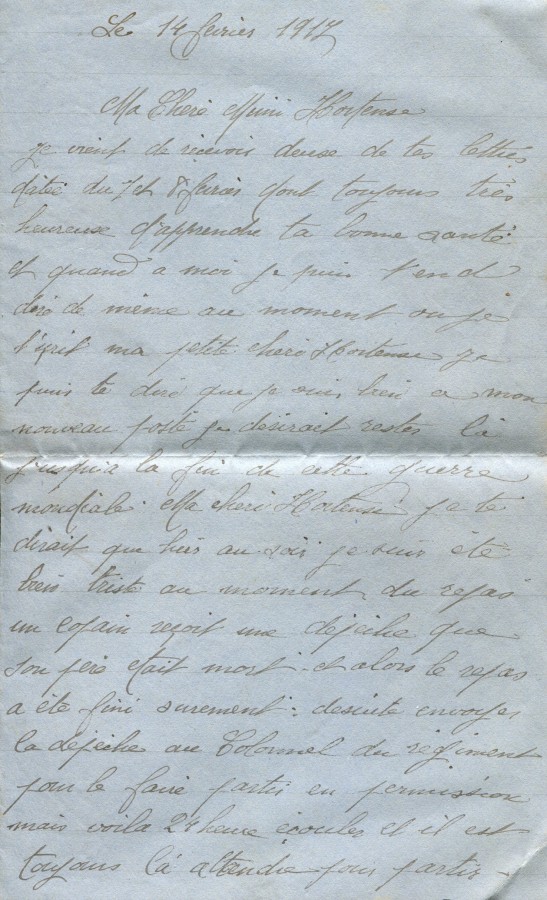 Le 14 fevrier 1917
Ma Cheré Mimi Hortense
je vient de recevoir deuse de tes lettres
datée du 7 et 8 fevrier dont toujours très
heureuse d'apprendre ta bonne santé
et quand a moi je puis t'end
diré de même au moment ou je
t'ecrit ma petite cheré Hortense je
puis te diré que je suis bien a mon
nouveau poste je désirait rester là
jusqu'a la fin de cette guerre
mondiale. Ma cheri Hortense je te
dirait que hier au soir je suis été
bien triste au moment du repas
un copain reçoit une dépêche que
son père était mort et alors le repas
a été fini surement. desuite envoyer
la dépêche au Colonnel du régiment
pour le faire partir en permission
mais voila 24 heure écoules et il est
toujours là attendre pour partir -